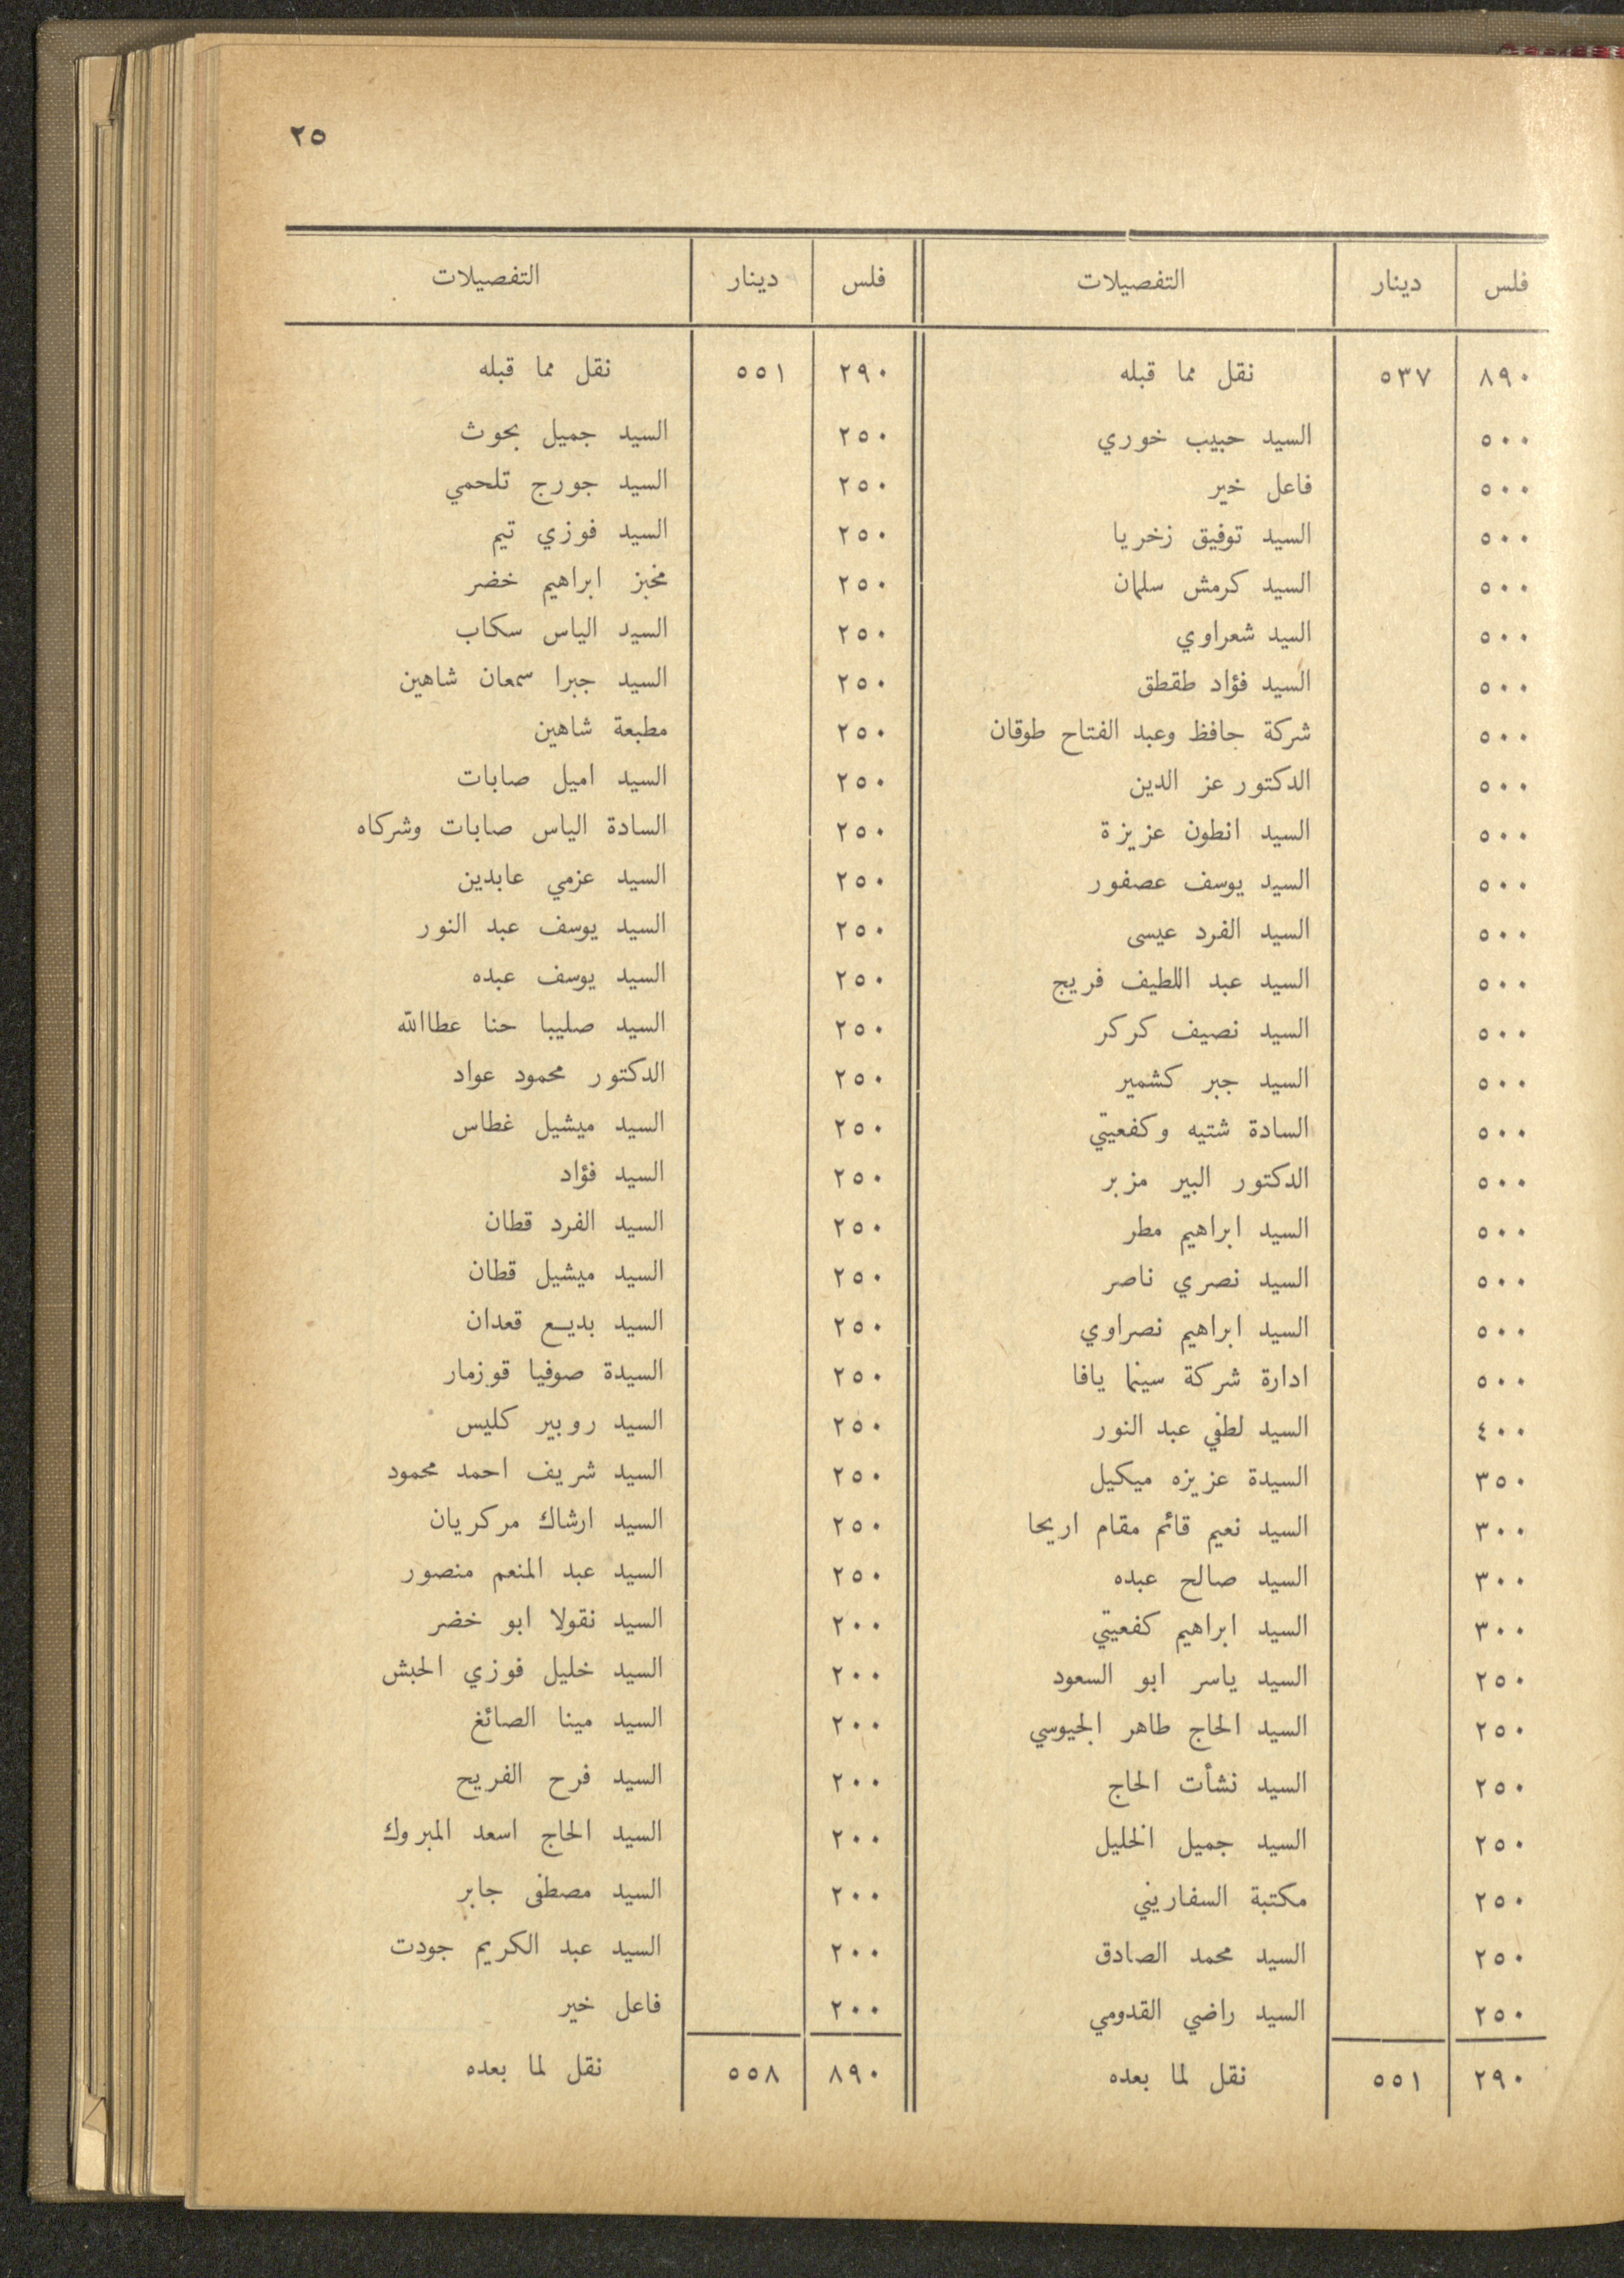 ٢٥
فلس دينار التفصيلات
٨٩٠ ٥٣٧ نقل مما قبله
٥٠٠ السيد حبيب خوري
٥٠٠ فاعل خير
٥٠٠ السيد توفيق زخريا
٥٠٠ السيد كرمش سلمان
٥٠٠ السيد شعراوي
٥٠٠ السيد فؤاد طقطق
٥٠٠ شركة حافظ وعبد الفتاح طوقان
٥٠٠ الدكتور عز الدين
٥٠٠ السيد انطون عزيزة
٥٠٠ السيد يوسف عصفور
٥٠٠ السيد الفرد عيسى
٥٠٠ السيد عبد اللطيف فريج
٥٠٠ السيد نصيف كركر
٥٠٠ السيد جبر كشمير
٥٠٠ السادة شتيه وكفعيتي
٥٠٠ الدكتور البير مزبر
٥٠٠ السيد ابراهيم مطر
٥٠٠ السيد نصري ناصر
٥٠٠ السيد ابراهيم نصراوي
٥٠٠ ادارة شركة سينما يافا
٤٠٠ السيد لطفي عبد النور
٣٥٠ السيدة عزيزه ميكيل
٣٠٠ السيد نعيم قائم مقام اريحا
٣٠٠ السيد صالح عبده
٣٠٠ السيد ابراهيم كفعيتي
٢٥٠ السيد ياسر ابو السعود
٢٥٠ السيد الحاج طاهر الجيوسي
٢٥٠ السيد نشأت الحاج
٢٥٠ السيد جميل الخليل
٢٥٠ مكتبة السفاريني
٢٥٠ السيد محمد الصادق
٢٥٠ السيد راضي القدومي
٢٩٠ ٥٥١ نقل لما بعده
فلس دينار التفصيلات
٢٩٠ ٥٥١ نقل مما قبله
٢٥٠ السيد جميل بحوث
٢٥٠ السيد جورج تلحمي
٢٥٠ السيد فوزي تيم
٢٥٠ مخبز ابراهيم خضر
٢٥٠ السيد الياس سكاب
٢٥٠ السيد جبرا سمعان شاهين
٢٥٠ مطبعة شاهين
٢٥٠ السيد اميل صابات
٢٥٠ السادة الياس صابات وشركاه
٢٥٠ السيد عزمي عابدين
٢٥٠ السيد يوسف عبد النور
٢٥٠ السيد يوسف عبده
٢٥٠ السيد صليبا حنا عطاالله
٢٥٠ الدكتور محمود عواد
٢٥٠ السيد ميشيل غطاس
٢٥٠ السيد فؤاد
٢٥٠ السيد الفرد قطان
٢٥٠ السيد ميشيل قطان
٢٥٠ السيد بديع قعدان
٢٥٠ السيدة صوفيا قوزمار
٢٥٠ السيد روبير كليس
٢٥٠ السيد شريف احمد محمود
٢٥٠ السيد ارشاك مركريان
٢٥٠ السيد عبد المنعم منصور
٢٠٠ السيد نقولا ابو خضر
٢٠٠ السيد خليل فوزي الحبش
٢٠٠ السيد مينا الصائغ
٢٠٠ السيد فرح الفريح
٢٠٠ السيد الحاج اسعد المبروك
٢٠٠ السيد مصطفى جابر
٢٠٠ السيد عبد الكريم جودت
٢٠٠ فاعل خير
٨٩٠ ٥٥٨ نقل لما بعده